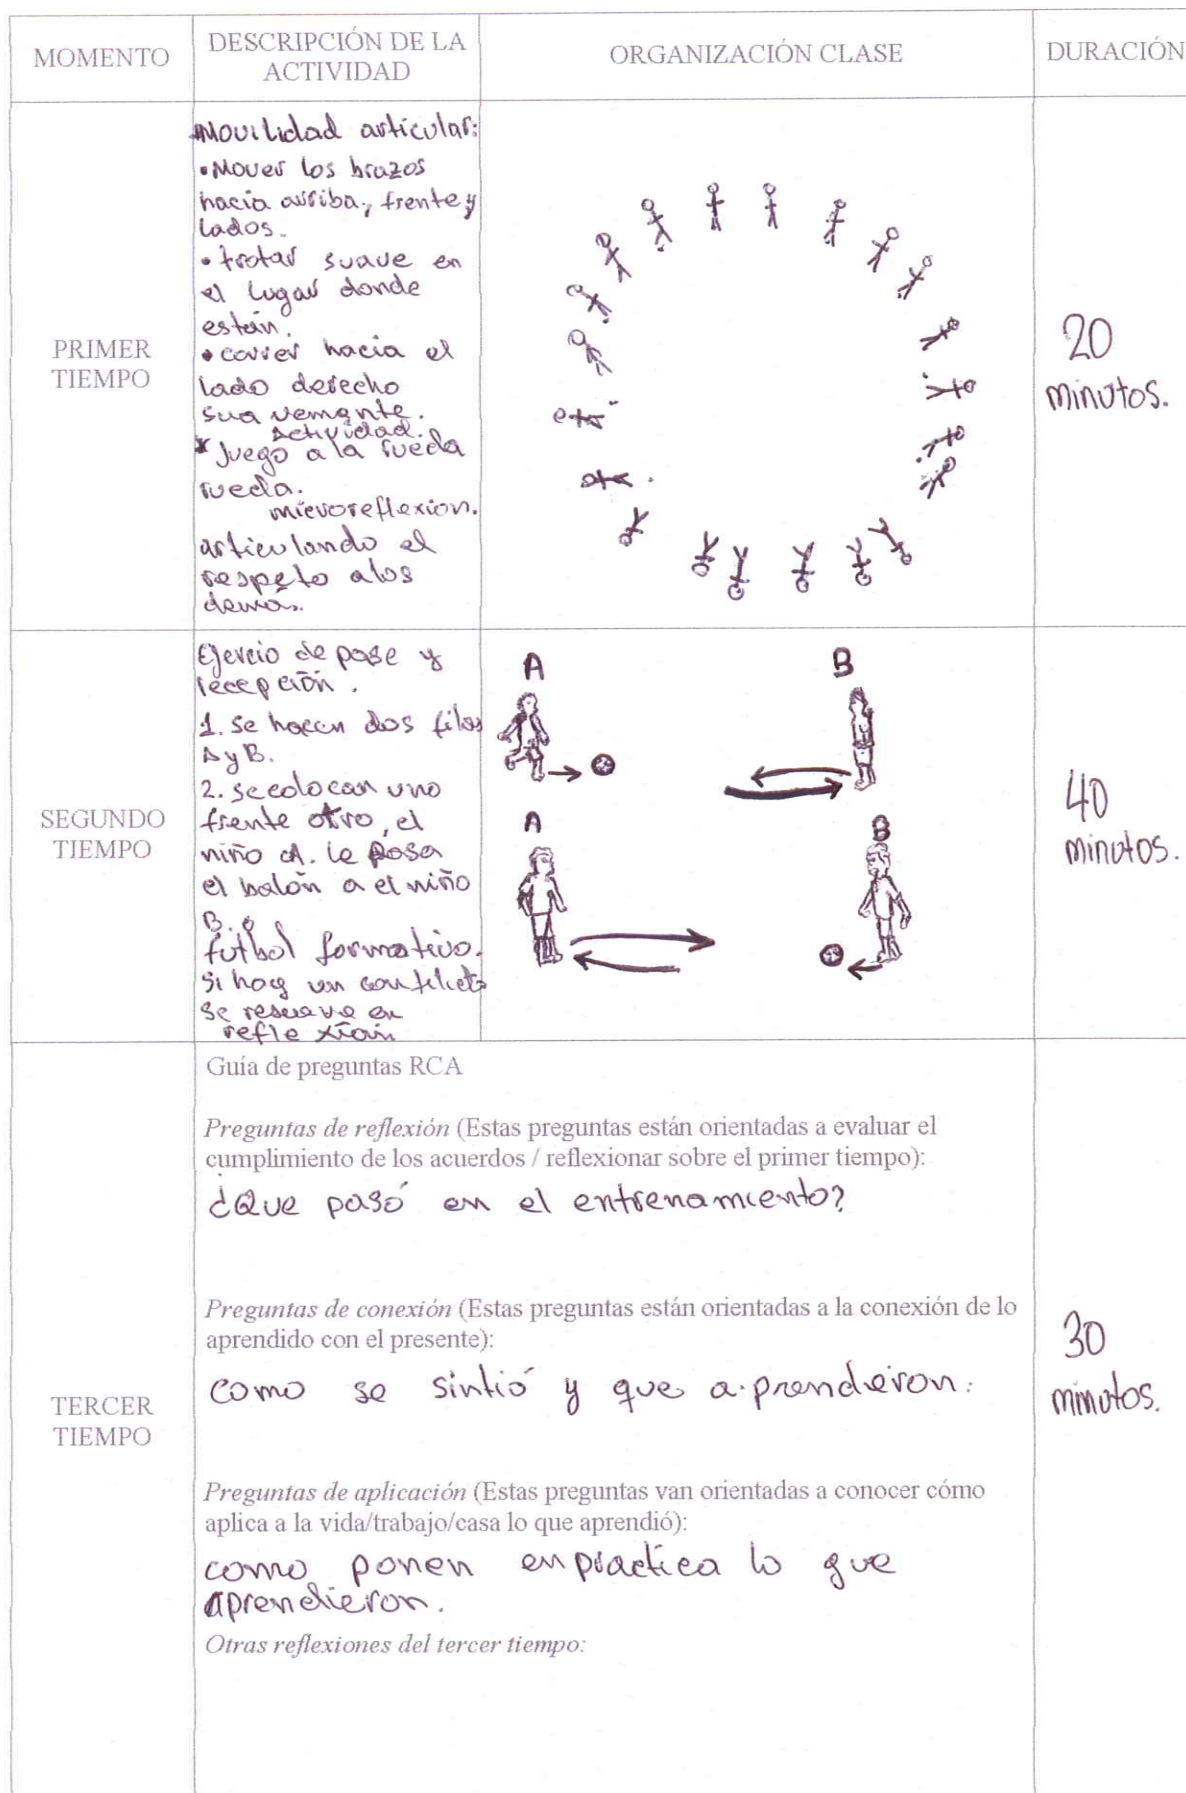 MOMENTO
DESCRIPCIÓN DE LA
ACTIVIDAD
ORGANIZACIÓN CLASE
DURACIÓN
PRIMER
TIEMPO
*Movilidad articular:
• Mover los brazos
hacia arriba, frente y
lados.
• trotar suave en
el lugar donde
están.
• correr hacia el
lado derecho
suavemente.
Actividad.
* Juego a la rueda
rueda.
microreflexion.
articulando el
respeto a los
demás.
20
minutos.
SEGUNDO
TIEMPO
Ejercio de pase y
recepción.
1. se hacen dos filas
A y B.
2. se colocan uno
frente otro, el
niño A. le pasa
el balón a el niño
B.
futbol formativo.
si hay un conflicto
se resuelve en
reflexión
A
B
A
B
40
minutos.
TERCER
TIEMPO
Guía de preguntas RCA
Preguntas de reflexión (Estas preguntas están orientadas a evaluar el
cumplimiento de los acuerdos / reflexionar sobre el primer tiempo):
¿Que pasó en el entrenamiento?
Preguntas de conexión (Estas preguntas están orientadas a la conexión de lo
aprendido con el presente):
como se sintió y que aprendieron.
Preguntas de aplicación (Estas preguntas van orientadas a conocer cómo
aplica a la vida/trabajo/casa lo que aprendió):
como ponen en practica lo que
aprendieron.
Otras reflexiones del tercer tiempo:
30
minutos.